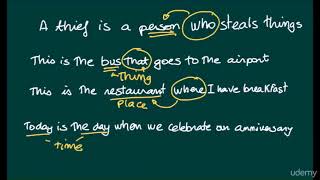 A thief is a person who steals things
This is the bus that goes to the airport
Thing
This is the restaurant where I have breakfast
Place
Today is the day when we celebrate an anniversary
time
udemy